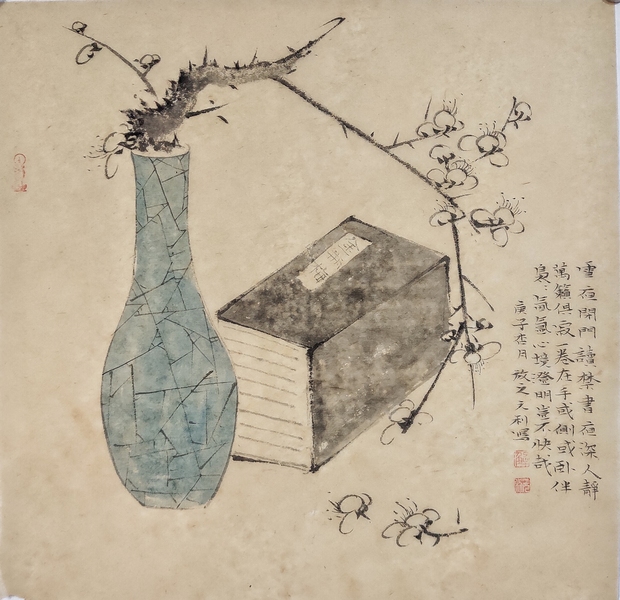 金瓶梅
雪夜閉門讀禁書夜深人靜
萬籟俱寂一卷在手或側或卧伴
裊〻氤氳心境澄明豈不快哉
庚子杏月放之天利寫